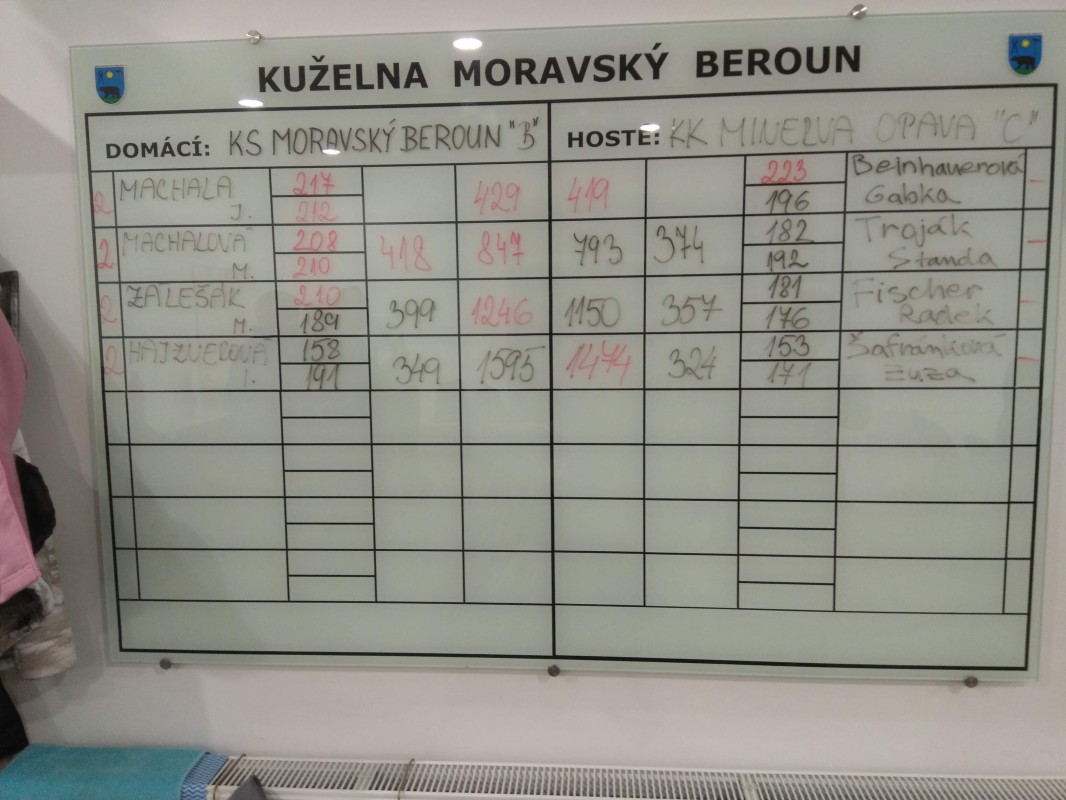 KUŽELNA MORAVSKÝ BEROUN
DOMÁCÍ: KS MORAVSKÝ BEROUN "B"
HOSTÉ: KK MINERVA OPAVA "C"
2 MACHALA J. 217 212 429
419 223 196 Beinhauerová Gabka -
2 MACHALOVÁ M. 208 210 418 847
793 374 182 192 Troják Standa -
2 ZÁLEŠÁK M. 210 189 399 1246
1150 357 181 176 Fischer Radek -
2 HAJZLEROVÁ I. 158 191 349 1595
1474 324 153 171 Šafránková Zuza -